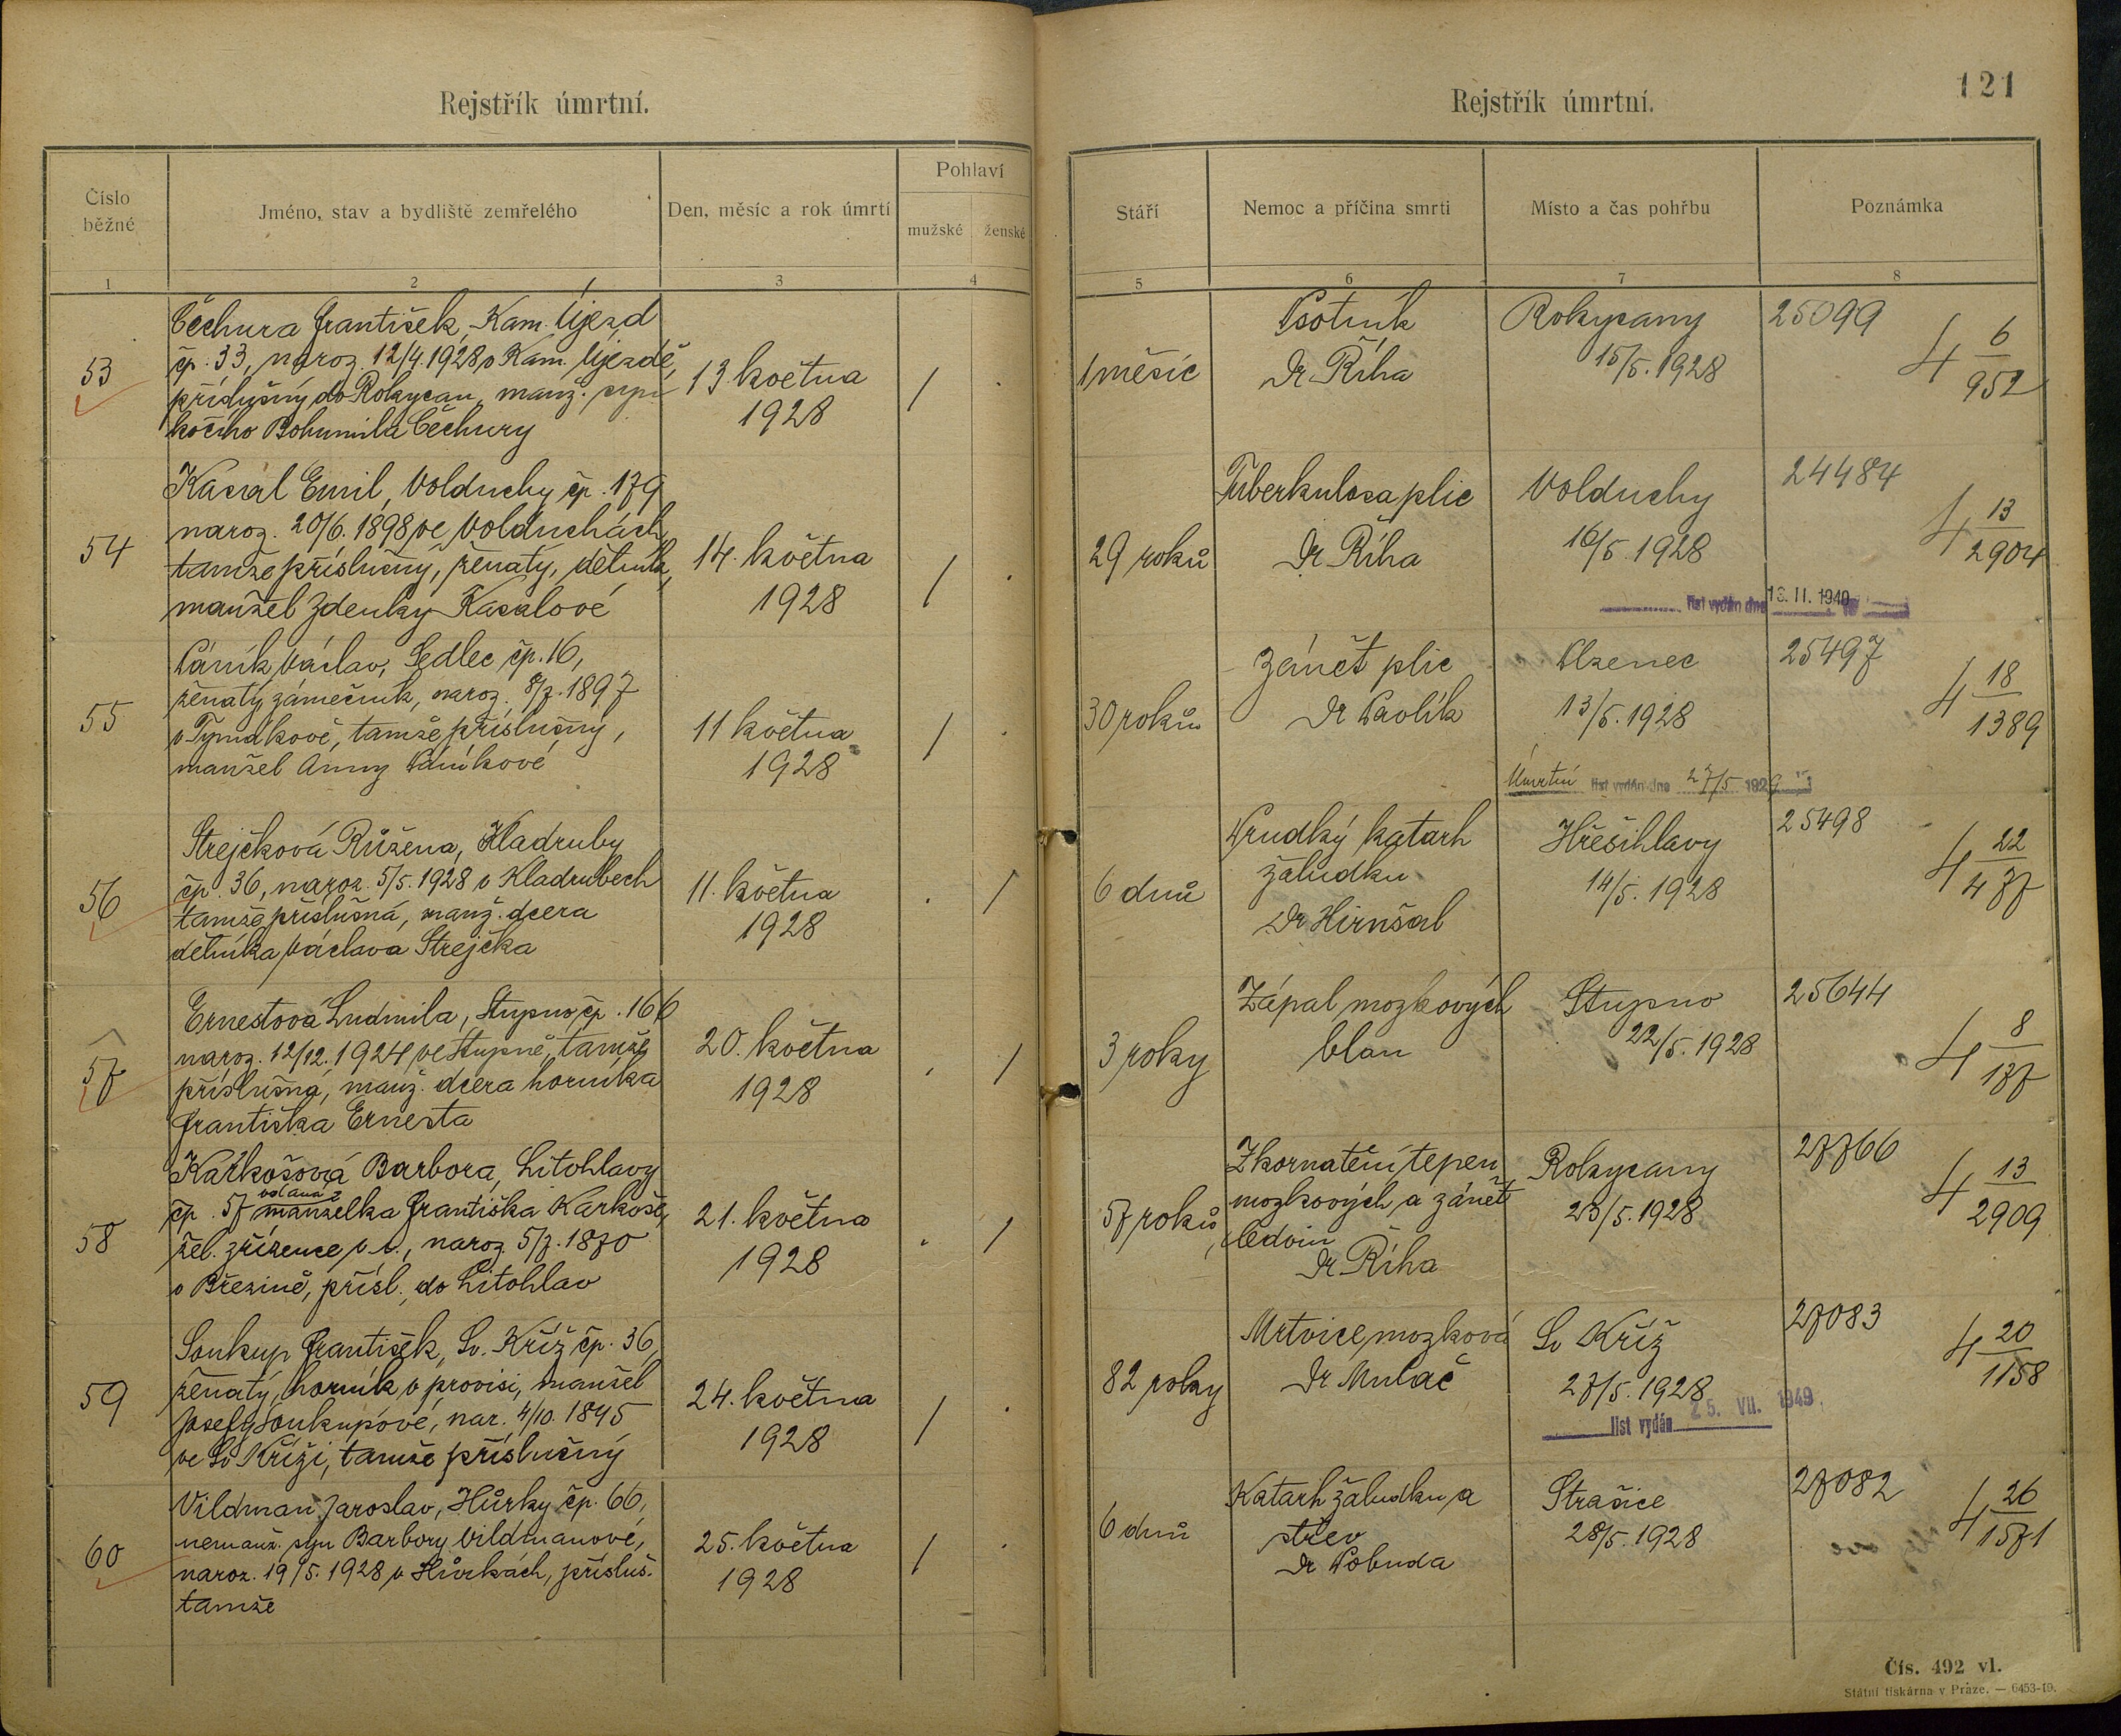 Rejstřík úmrtní.
Číslo běžné
Jméno, stav a bydliště zemřelého
Den, měsíc a rok úmrtí
Pohlaví
mužské ženské
1 2 3 4
53
Čechura František, Kam. Újezd
čp. 33, naroz. 12/4. 1928 v Kam. Újezdě,
příslušný do Rokycan, manž. syn
kočího Bohumila Čechury
13. května
1928
/ .
54
Kasal Emil, Volduchy čp. 179
naroz. 20/6. 1898 ve Volduchách
tamže příslušný, ženatý, dělník,
manžel Zdenky Kasalové
14. května
1928
/ .
55
Páník Václav, Sedlec čp. 16,
ženatý zámečník, naroz. 8/7. 1897
v Tymákově, tamže příslušný,
manžel Anny Páníkové
11 května
1928
/ .
56
Strejčková Růžena, Kladruby
čp. 36, naroz. 5/5. 1928 v Kladrubech
tamže příslušná, manž. dcera
dělníka Václava Strejčka
11. května
1928
. /
57
Ernestová Ludmila, Stupno čp. 166
naroz. 12/12. 1924 ve Stupně, tamže
příslušná, manž. dcera horníka
Františka Ernesta
20. května
1928
. /
58
Karkošová Barbora, Litohlavy
čp. 57 manželka Františka Karkoše,
žel. zřízence v. v., naroz. 5/7. 1870
v Březině, přísl. do Litohlav
21. května
1928
. /
59
Soukup František, Sv. Kříž čp. 36,
ženatý, horník v provisi, manžel
Josefy Soukupové, nar. 4/10. 1845
ve Sv Kříži, tamže příslušný
24. května
1928
/ .
60
Vildman Jaroslav, Hůrky čp. 66,
nemanž. syn Barbory Vildmanové,
naroz. 19/5. 1928 v Hůrkách, přísluš.
tamže
25. května
1928
/ .
121
Rejstřík úmrtní.
Stáří
Nemoc a příčina smrti
Místo a čas pohřbu
Poznámka
5 6 7 8
1 měsíc
Psotník
Dr Říha
Rokycany
15/5. 1928
25099
4 6/952
29 roků
Tuberkulosa plic
Dr Říha
Volduchy
16/5. 1928
24484
4 13/2904
list vydán dne 13. II. 1940
30 roků
Zánět plic
Dr Pavlík
Plzenec
13/5. 1928
25497
4 18/1389
Úmrtní list vydán dne 27/5 1929
6 dnů
Prudký katarh
žaludku
Dr Hirnšal
Hřešihlavy
14/5. 1928
25498
4 22/477
3 roky
Zápal mozkových
blan
Stupno
22/5. 1928
25644
4 8/187
57 roků
Zkornatění tepen
mozkových a zánět
ledvin
Dr Říha
Rokycany
23/5. 1928
27766
4 13/2909
82 roky
Mrtvice mozková
Dr Mulač
Sv Kříž
27/5. 1928
27083
4 20/1158
list vydán 25. VII. 1949
6 dnů
Katarh žaludku a
střev
Dr Pobuda
Strašice
28/5. 1928
27082
4 26/1571
Čís. 492 vl.
Státní tiskárna v Praze. — 6453-19.